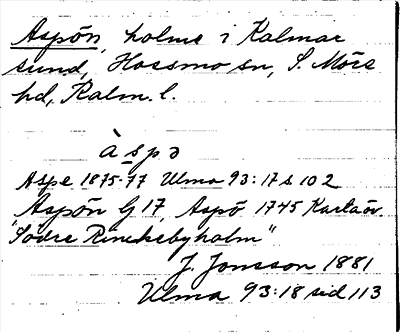 Aspön, holme i Kalmar
sund, Hossmo sn, S. Möre
hd, Kalm. l.
àspə
Aspe 1875-77 Ulma 93:17 s 102
Aspön G 17, Aspö 1745 Karta öv.
"Södre Rinckebyholm"
J. Jonsson 1881
Ulma 93:18 sid 113